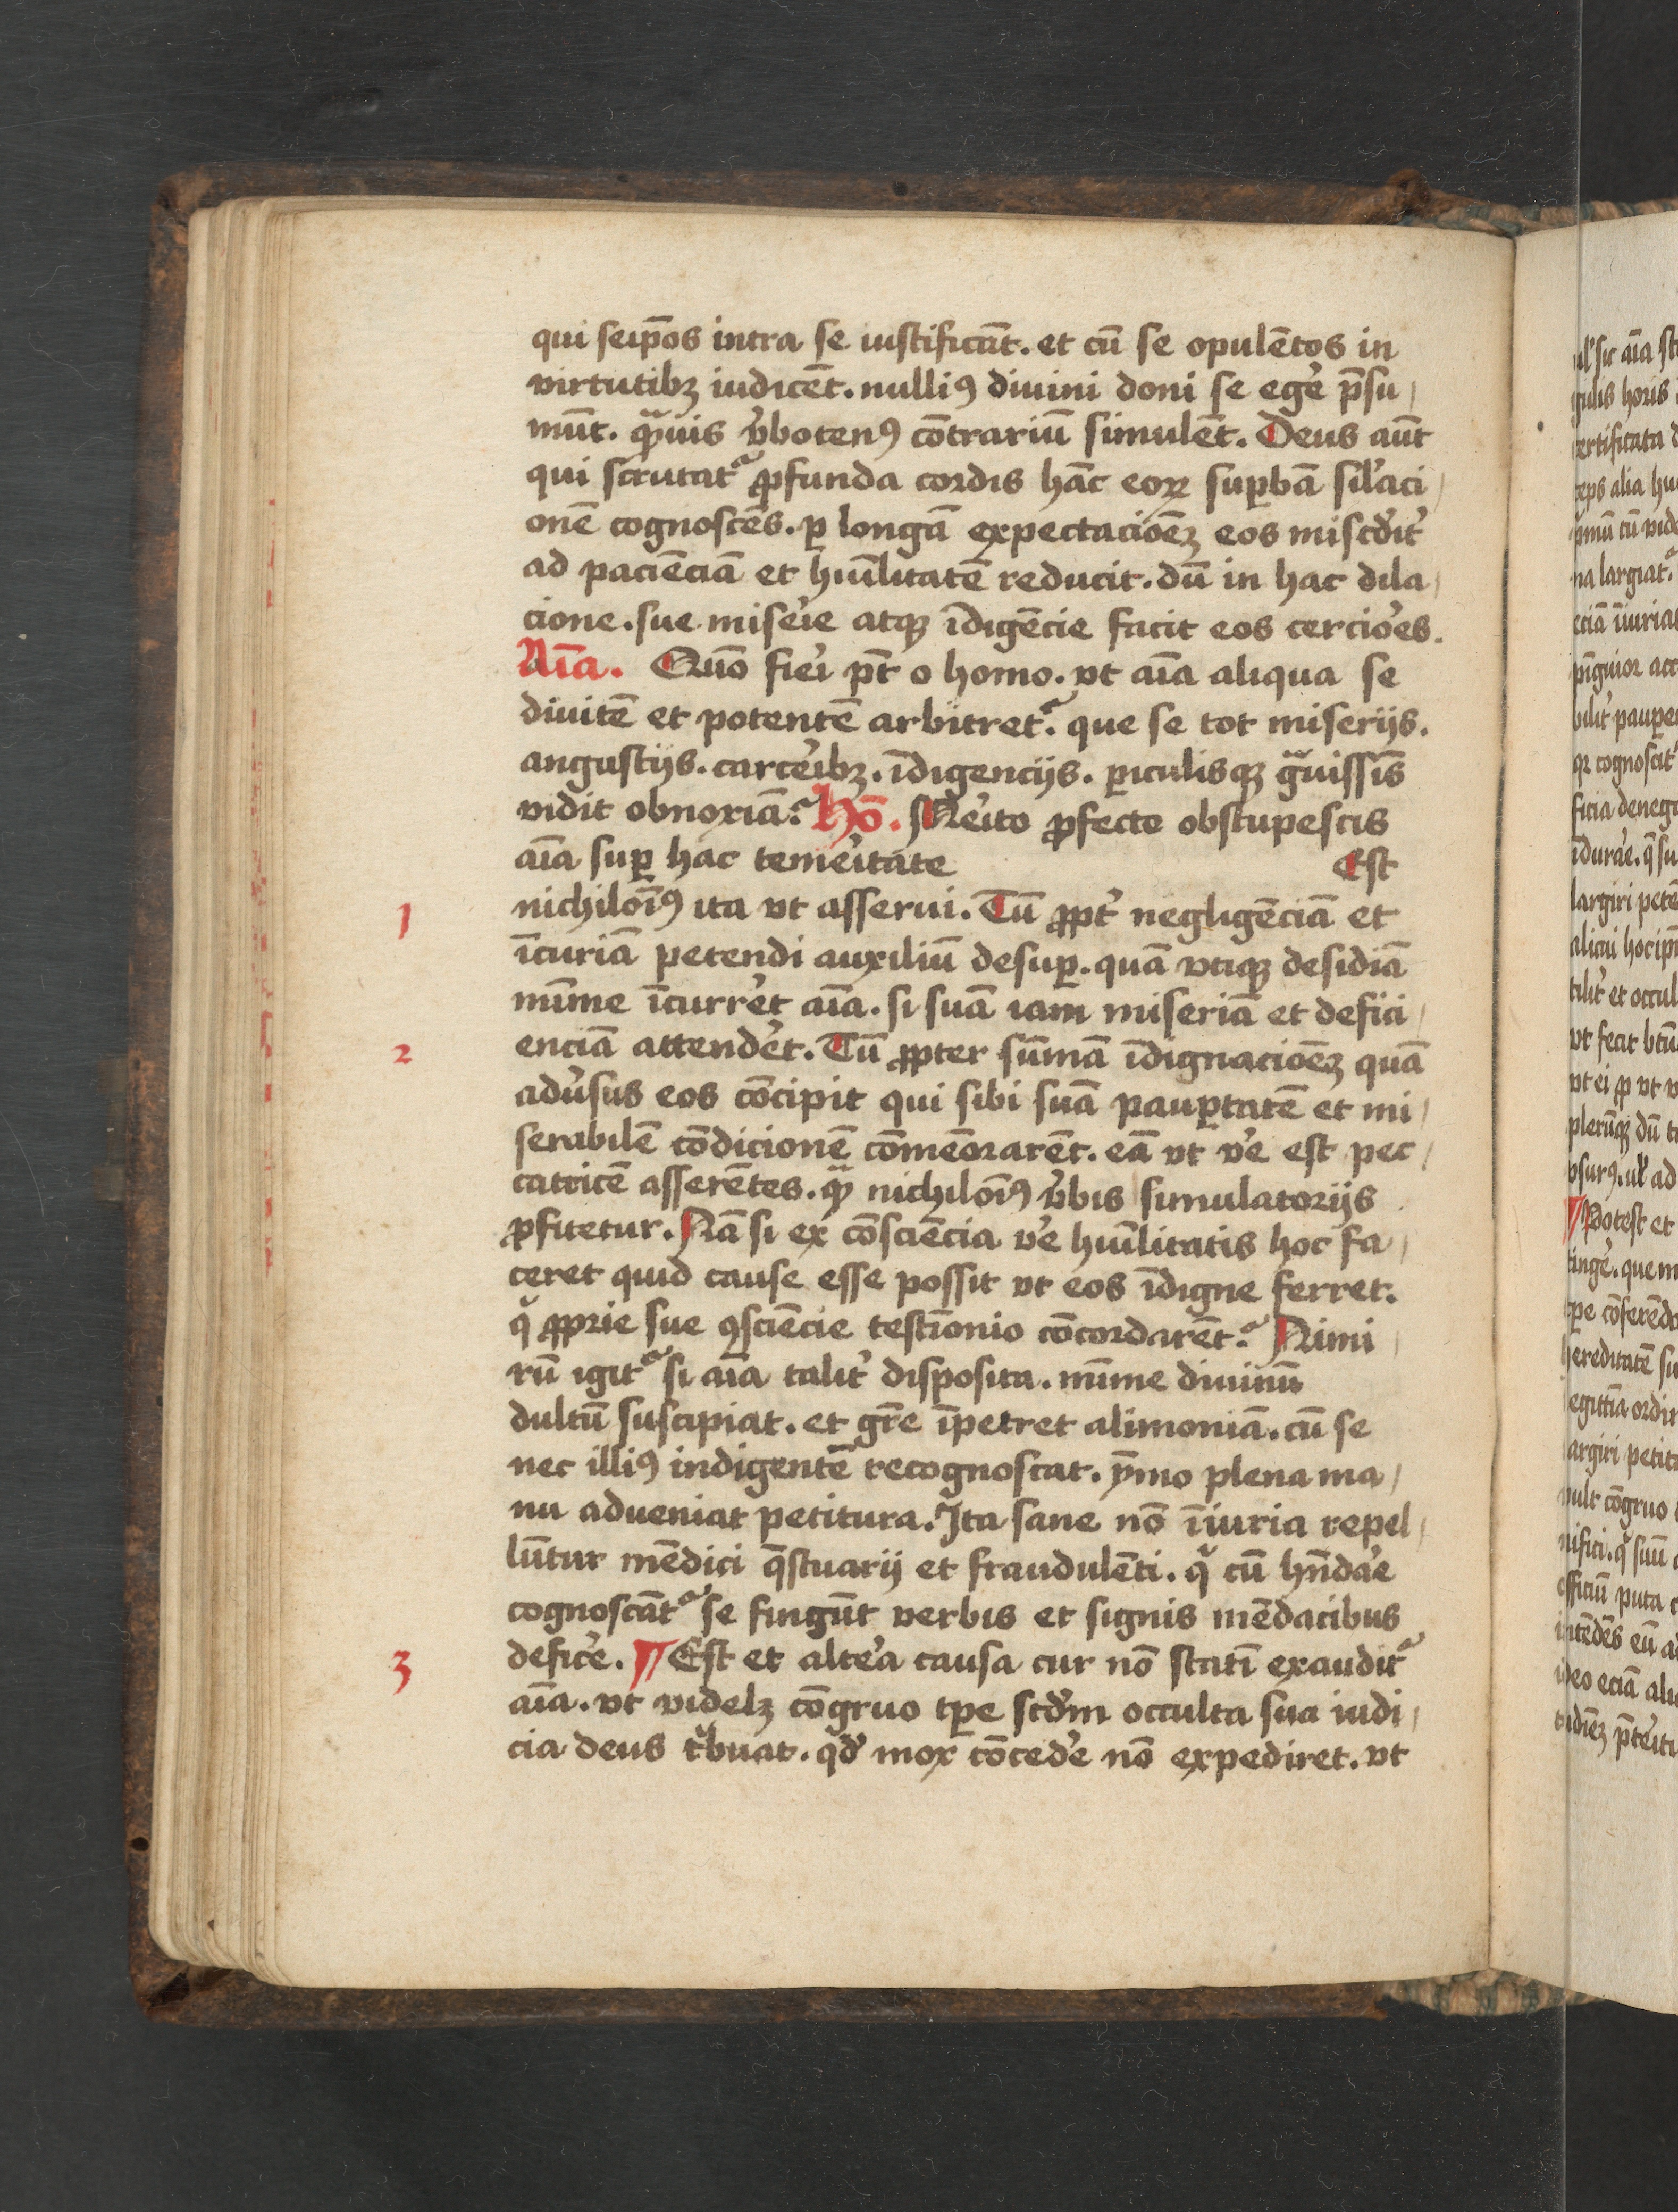 qui seip̄os intra se iustificāt. et cū se opulētos in
virtutibꝫ iudicēt. nulliꝰ diuini doni se ege᷑ p̄su/
mūt. qͣuis v᷑botenꝰ cōtrariū simulēt. Deus aūt
qui scrutat᷑ ꝓfunda cordis hāc eoꝝ suꝑbā sil᷑aci/
onē cognoscēs. ꝑ longā expectacioēꝫ eos misc᷑dit᷑
ad paciēciā et hūılitatē reducit. dū in hac dila/
cione. sue mise᷑ie atqꝫ īdigēcie facit eos cercio᷑es.
Aīa. Quō fie᷑i pt̄ o homo. vt aīa aliqua se
diuitē et potentē arbitret᷑. que se tot miserijs.
angustijs. carce᷑ibꝫ. īdigencijs. ꝑiculisqꝫ gͣuissīs
vidit obnoxiā? Hō. Me᷑ito ꝓfecto obstupescis
aīa suꝑ hac teme᷑itate Est
1 nichiloīꝰ ita vt asserui. Tū ꝓpt᷑ negligēciā et
īcuriā petendi auxiliū desuꝑ. quā vtiqꝫ desidiā
mīme īcurre᷑t aīa. si suā iam miseriā et defici/
2 enciā attende᷑t. Tū ꝓpter sūmā īdignacioēꝫ quā
adu᷑sus eos cōcipit qui sibi suā pauꝑtatē et mi/
serabilē cōdicionē cōmēorarēt. eā vt ve᷑ est pec/
catricē asserētes. qͣꝫ nichiloīꝰ v᷑bis simulatorijs
ꝓfitetur. Nā si ex cōsciēcia ve᷑ hūılitatis hoc fa/
ceret quid cause esse possit vt eos īdigne ferret.
qͥ ꝓprie sue ꝯsciēcie testīonio cōcordarēt? Nimi/
rū igit᷑ si aīa talit᷑ disposita. mīme diuinū
dultū suscipiat. et gr̄e īpetret alimoniā. cū se
nec illiꝰ indigentē recognoscat. ȳmo plena ma/
nu adueniat petitura. Ita sane nō īiuria repel/
lūtur mēdici q̄stuarij et fraudulēti. qͥ cū hn̄da᷑e
cognoscāt᷑ se fingūt verbis et signis mēdacibus
3 defice᷑. ¶ Est et alte᷑a causa cur nō statī exaudit᷑
aīa. vt videlꝫ cōgruo tꝑe scd᷑m occulta sua iudi/
cia deus tͥbuat. qd᷑ mox cōcede᷑ nō expediret. vt